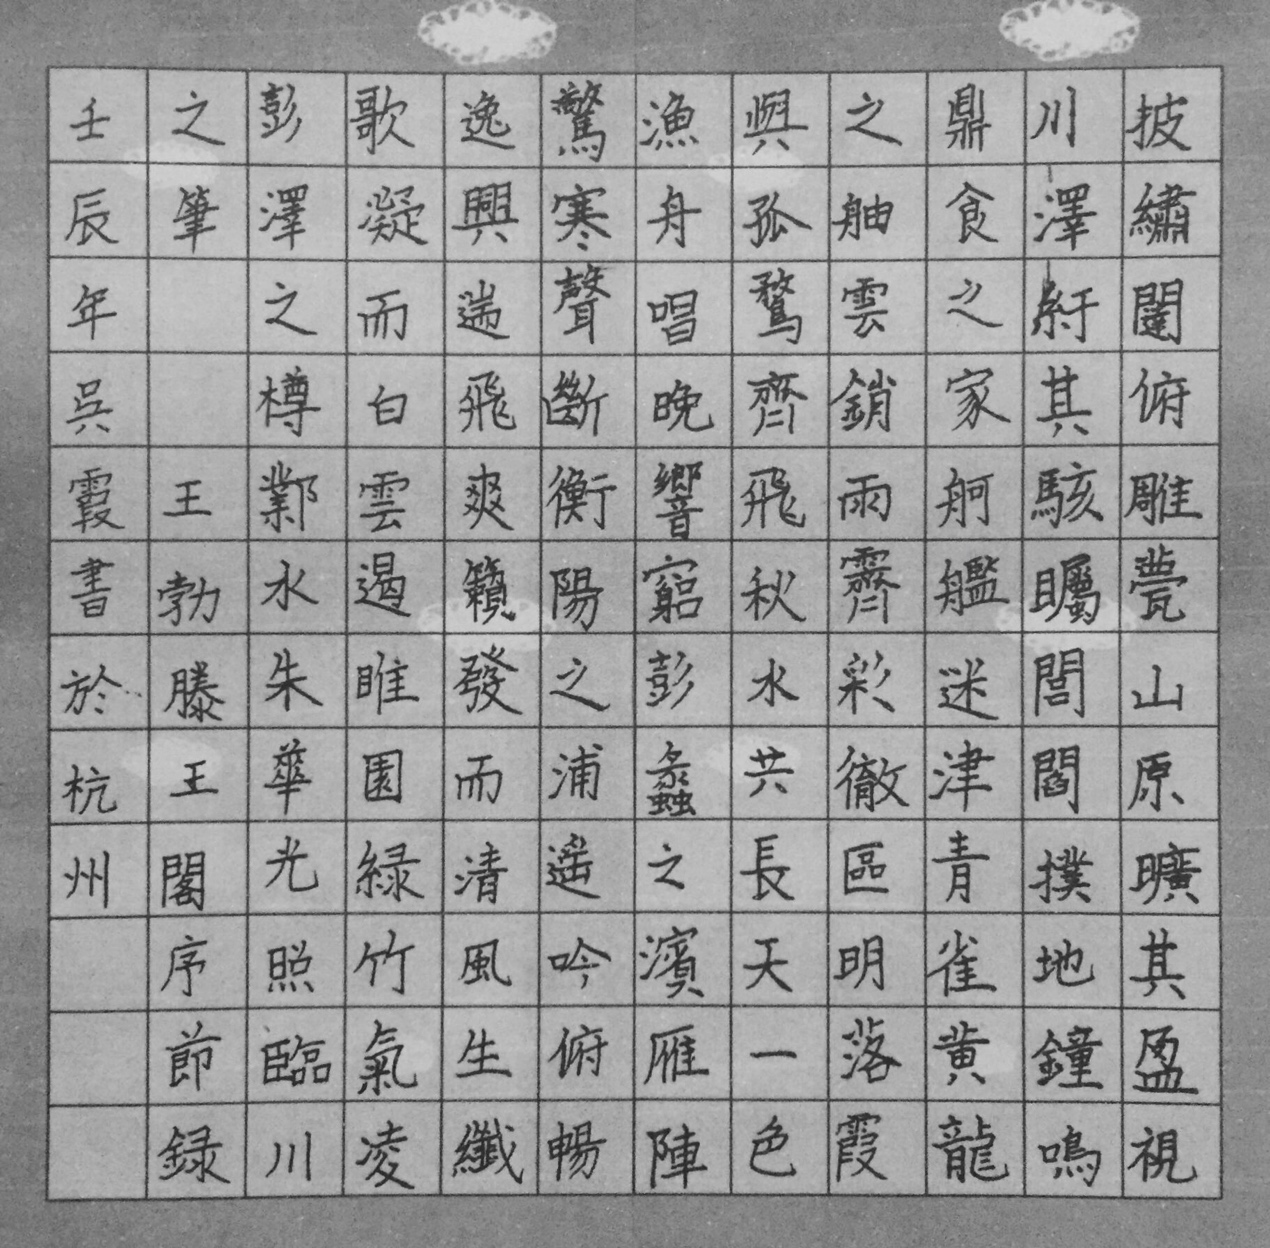 披繡闥俯雕甍山原曠其盈視
川澤紆其駭矚閭閻撲地鐘鳴
鼎食之家舸艦迷津青雀黄龍
之舳雲銷雨霽彩徹區明落霞
與孤鶩齊飛秋水共長天一色
漁舟唱晚響窮彭蠡之濱雁陣
驚寒聲斷衡陽之浦遥吟俯暢
逸興遄飛爽籟發而清風生纖
歌凝而白雲遏睢園緑竹氣凌
彭澤之樽鄴水朱華光照臨川
之筆 王勃滕王閣序節録
壬辰年吳霞書於杭州